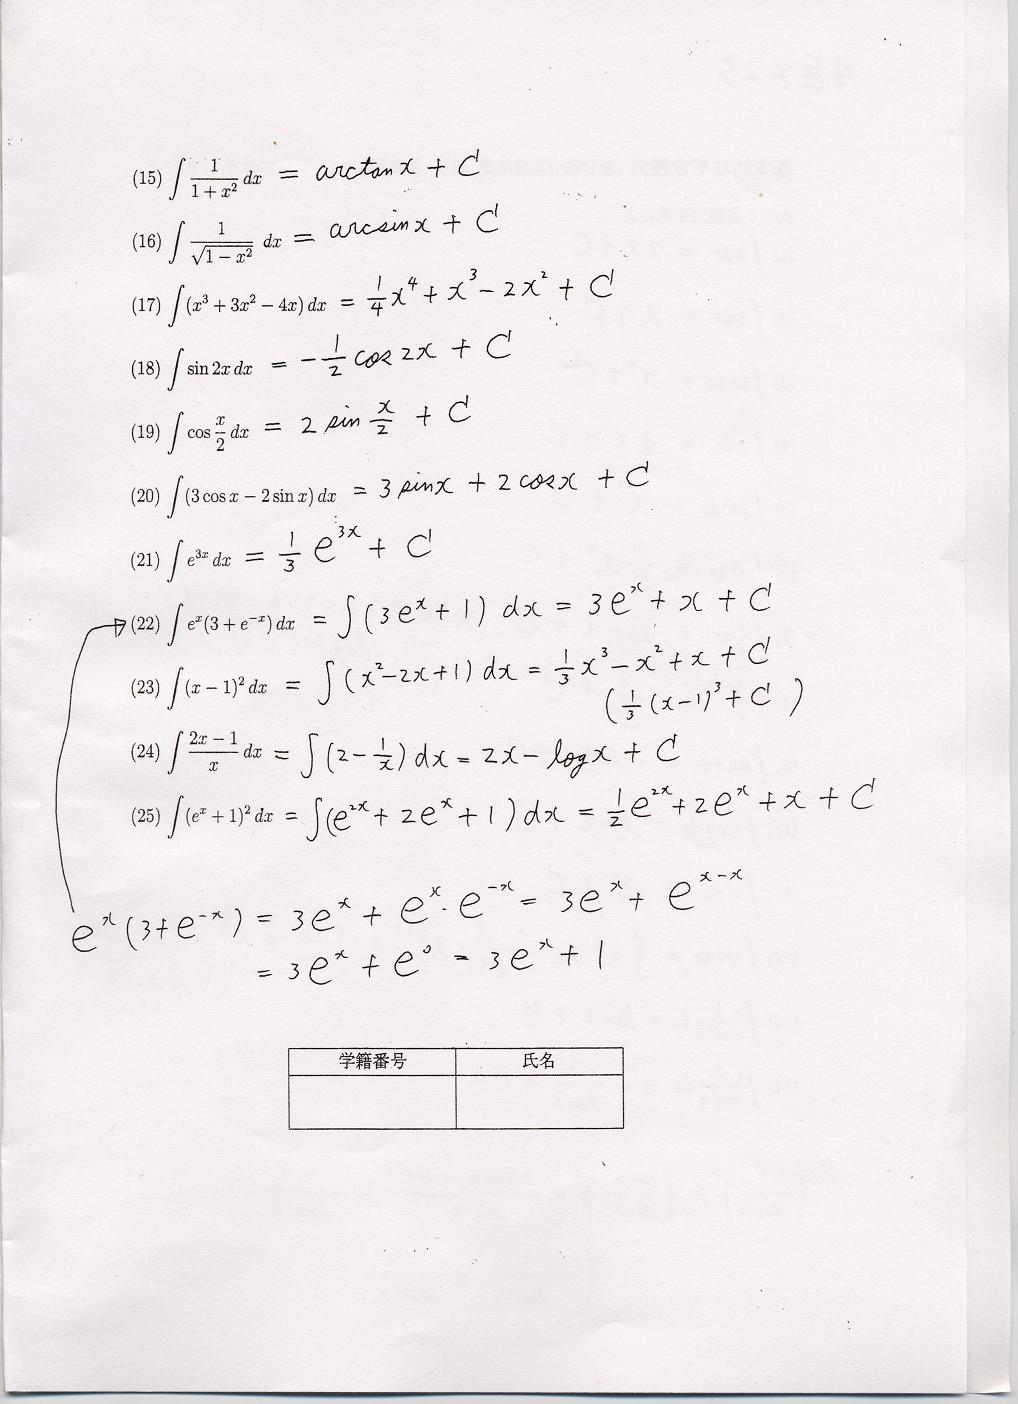 (15) ∫ 1/(1+x²) dx = arctan x + C
(16) ∫ 1/√(1−x²) dx = arcsin x + C
(17) ∫(x³ + 3x² − 4x) dx = 1/4 x⁴ + x³ − 2x² + C
(18) ∫ sin 2x dx = −1/2 cos 2x + C
(19) ∫ cos x/2 dx = 2 sin x/2 + C
(20) ∫(3 cos x − 2 sin x) dx = 3 sin x + 2 cos x + C
(21) ∫ e^{3x} dx = 1/3 e^{3x} + C
(22) ∫ e^x(3 + e^{−x}) dx = ∫(3e^x + 1) dx = 3e^x + x + C
(23) ∫(x − 1)² dx = ∫(x² − 2x + 1) dx = 1/3 x³ − x² + x + C
(1/3 (x−1)³ + C)
(24) ∫ (2x − 1)/x dx = ∫(2 − 1/x) dx = 2x − log x + C
(25) ∫(e^x + 1)² dx = ∫(e^{2x} + 2e^x + 1) dx = 1/2 e^{2x} + 2e^x + x + C
e^x(3 + e^{−x}) = 3e^x + e^x · e^{−x} = 3e^x + e^{x−x}
= 3e^x + e^0 = 3e^x + 1
学籍番号 氏名